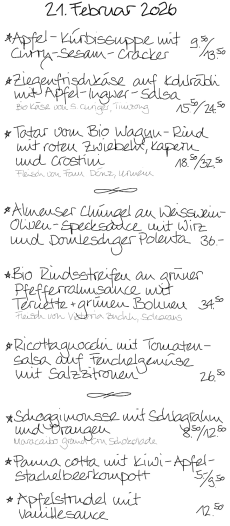 21. Februar 2026
* Apfel-Kürbissuppe mit 9.50/
Curry-Sesam-Cracker 13.50
* Ziegenfrischkäse auf Kohlrabi
mit Apfel-Ingwer-Salsa
Bio Käse von S. 15.50/24.50
* Tatar vom Bio Wagyu-Rind
mit roten Zwiebeln, Kapern
und Crostini 18.50/32.50
Fleisch von Fam.
* Almenser Chüngel an Weisswein-
Oliven-Specksauce mit Wirz
und Domleschger Polenta 36.-
* Bio Rindsstreifen an grüner
Pfefferrahmsauce mit
Teriette + grünen Bohnen 34.50
Fleisch von
* Ricottagnocchi mit Tomaten-
salsa auf Fenchelgemüse
mit Salzzitronen 26.50
* Schoggimousse mit Schlagrahm
und Orangen 8.50/12.50
Maracaibo Schokolade
* Panna cotta mit Kiwi-Apfel-
Stachelbeerkompott 5.-/9.50
* Apfelstrudel mit
Vanillesauce 12.50